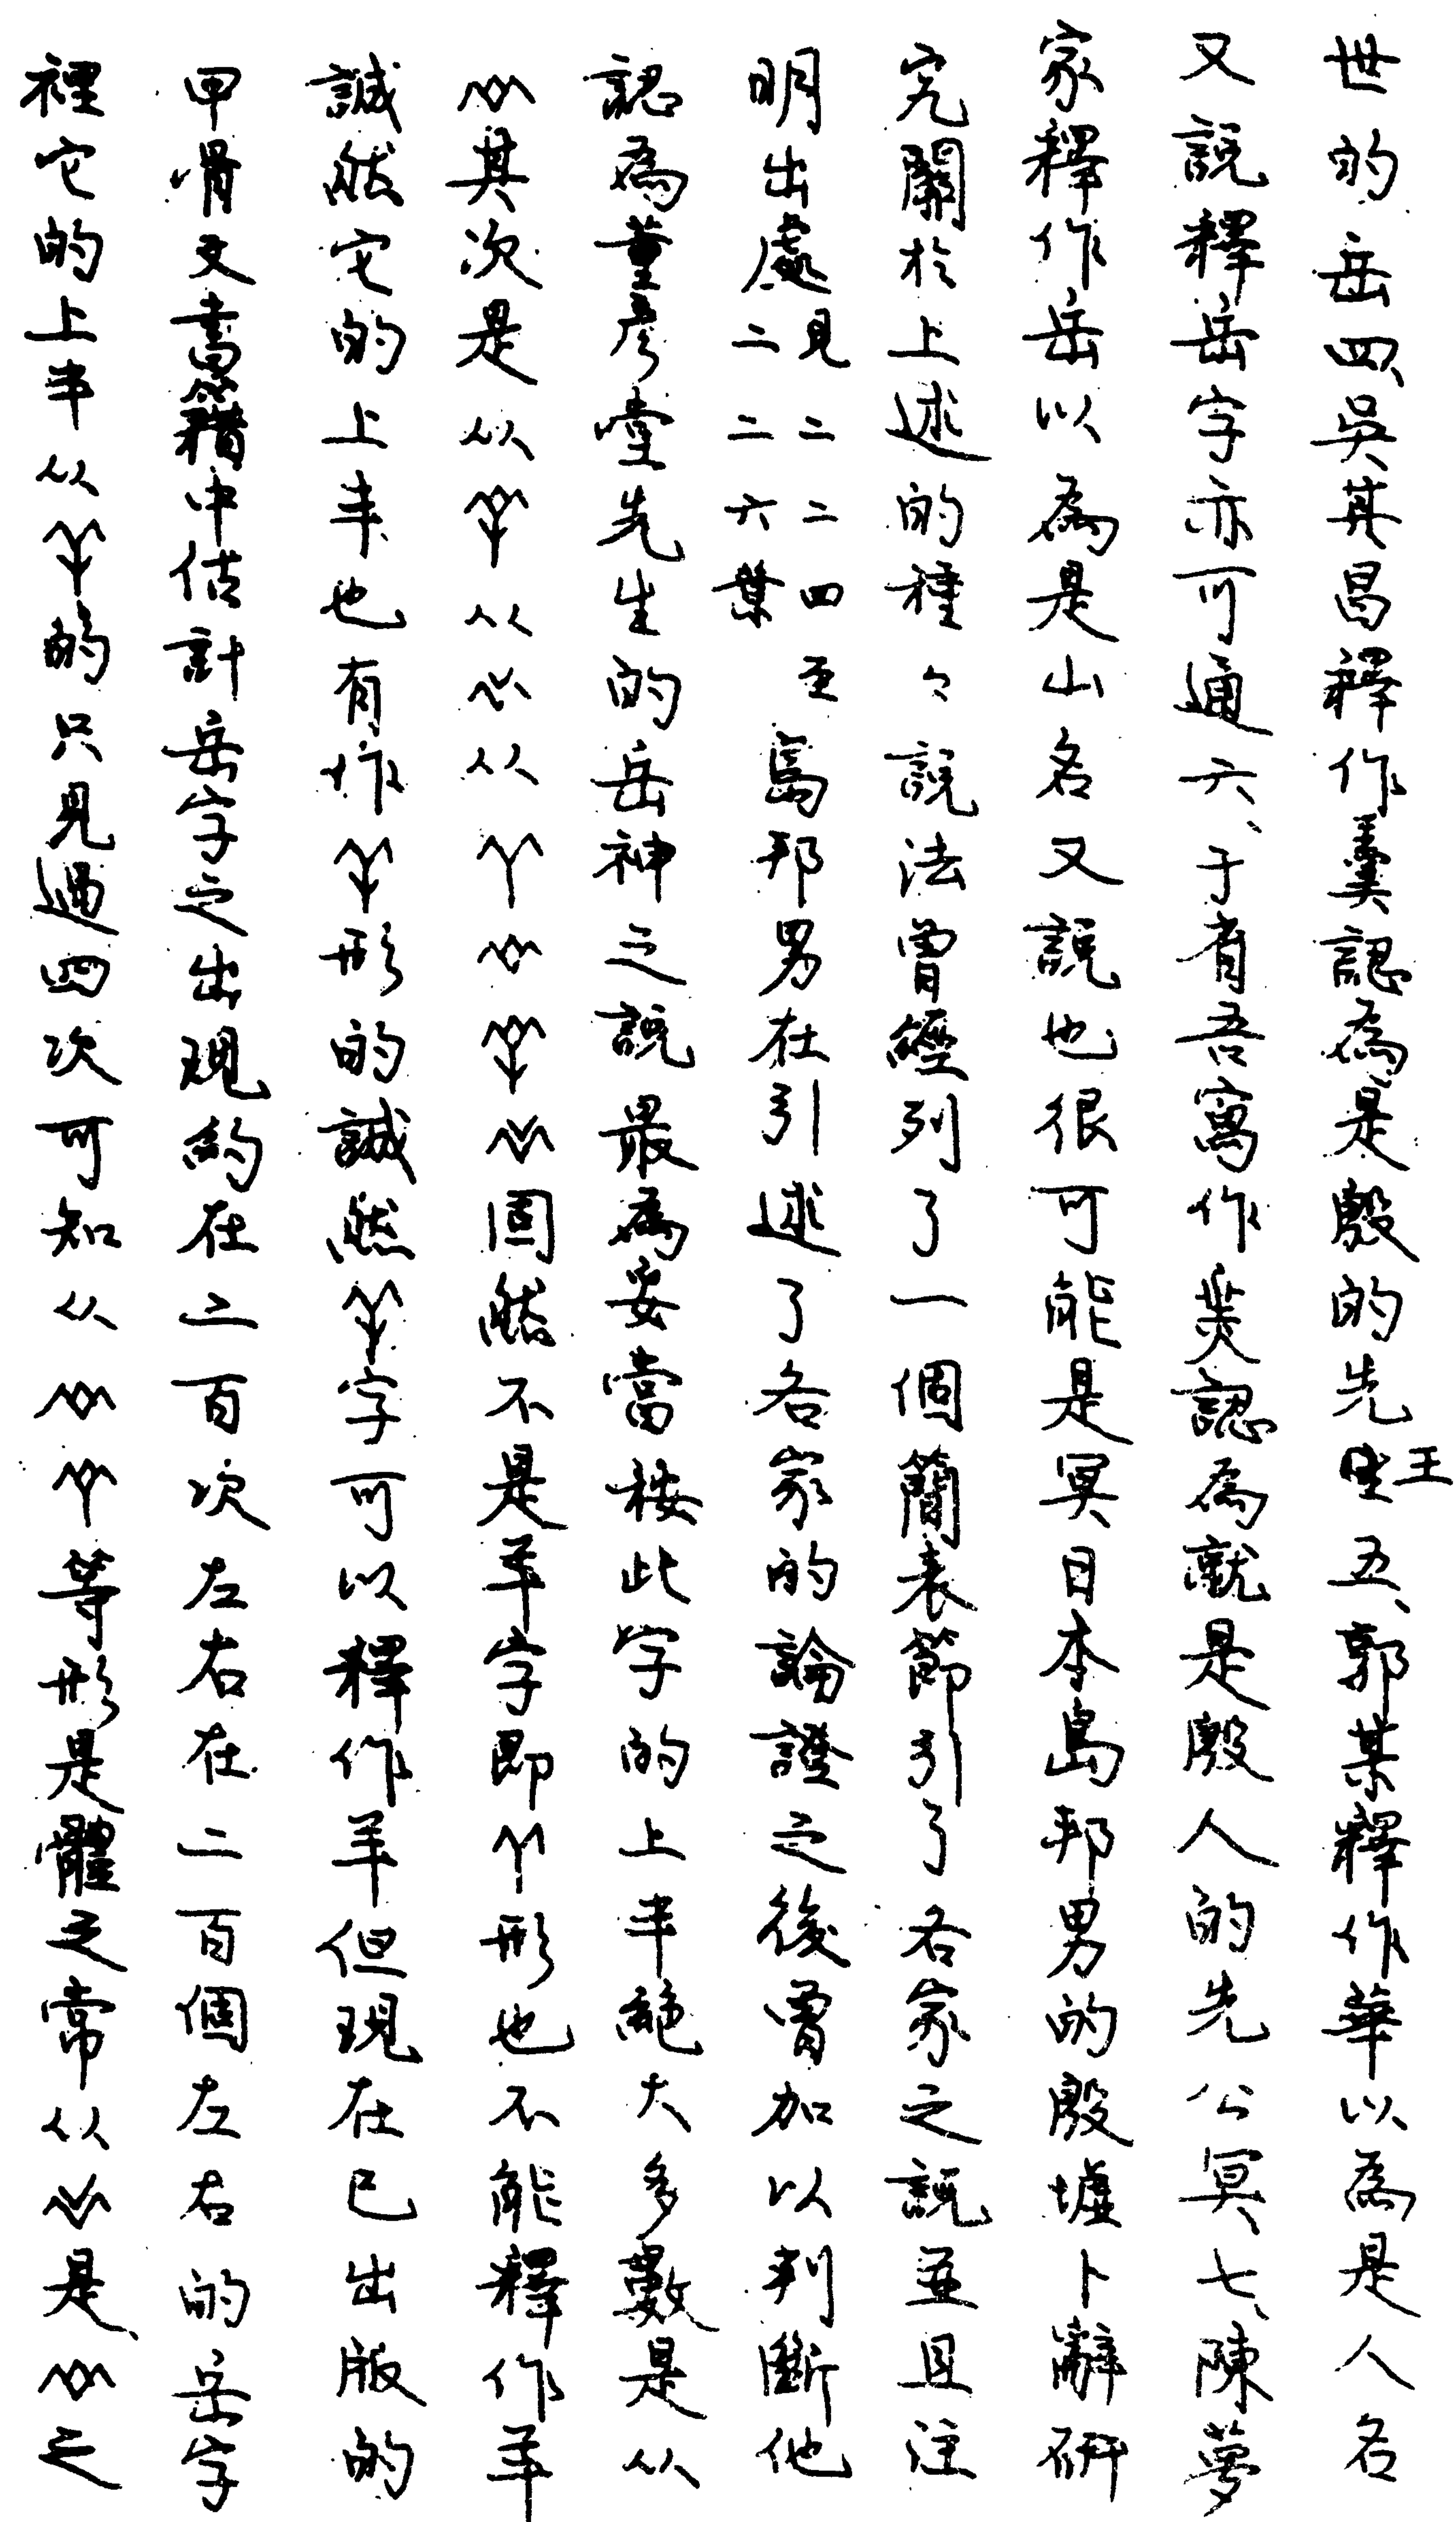 世的岳四、吳其昌釋作羹認為是殷的先王五、郭某釋作華以為是人名
又說釋岳字亦可通六、于省吾寫作𦍎認為就是殷人的先公冥、七、陳夢
家釋作岳以為是山名又說也很可能是冥日本島邦男的殷墟卜辭研
究關於上述的種々說法曾經列了一個簡表節引了各家之說並且注
明出處見二二四至二二六葉島邦男在引述了各家的論證之後曾加以判斷他
認為董彥堂先生的岳神之說最為妥當按此字的上半絕大多數是从
其次是从从从固然不是羊字即形也不能釋作羊
誠然它的上半也有作形的誠然字可以釋作羊但現在已出版的
甲骨文書籍中估計岳字之出現約在二百次左右在二百個左右的岳字
裡它的上半从的只見過四次可知从等形是體之常从是、之